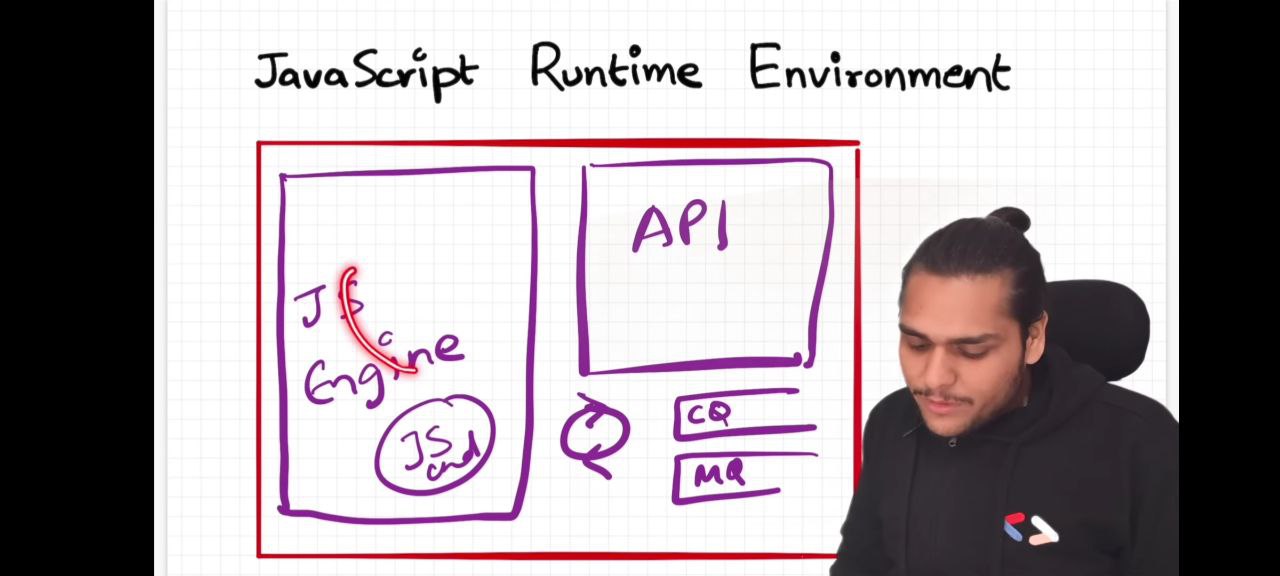 JavaScript Runtime Environment
JS
Engine
JS
API
CQ
MQ